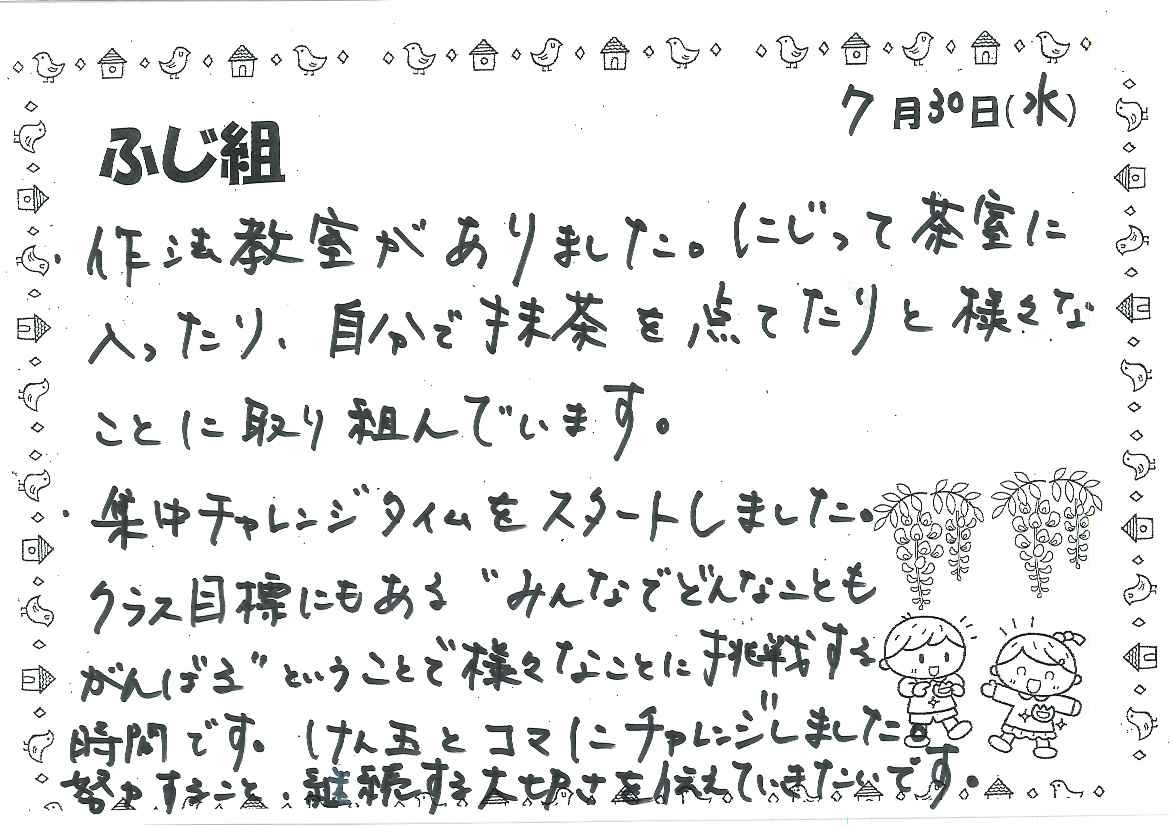 7月30日(水)
ふじ組
・作法教室がありました。にじって茶室に
入ったり、自分で抹茶を点てたりと様々な
ことに取り組んでいます。
・集中チャレンジタイムをスタートしました。
クラス目標にもある“みんなでどんなことも
がんばる”ということで様々なことに挑戦する
時間です。けん玉とコマにチャレンジしました。
努力すること、継続する大切さを伝えていきたいです。